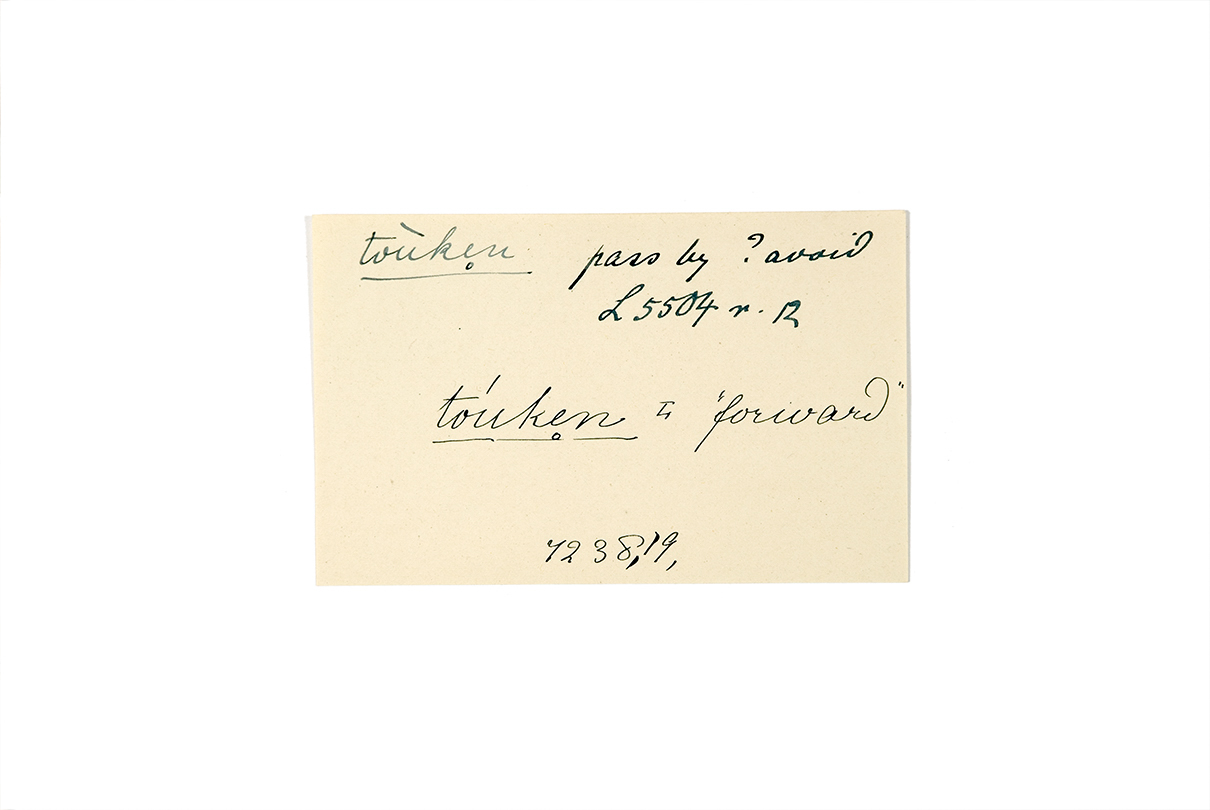 tòuken̥ pass by ? avoid
L 5504 r. 12
tóuken̥ = "forward"
7238,19,